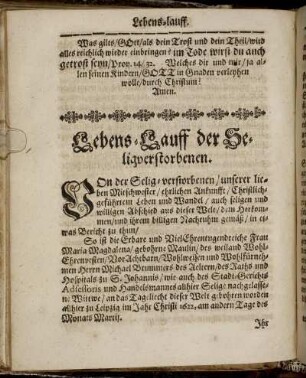 Lebens-lauff.
Was alles/ GOtt/als dein Trost und dein Theil/wird
alles reichlich wieder einbringen/ im Tode wirst du auch
getrost seyn/Prov. 14/32. Welches dir und mir/ja al-
len seinen Kindern/GOTT in Gnaden verleyhen
wolle/durch Christum!
Amen.
Lebens-Lauff der Se-
ligverstorbenen.
VOn der Selig-verstorbenen/unserer lie-
ben Mitschwester/ ehrlichen Ankunfft/ Christlich-
geführetem Leben und Wandel/ auch seligen und
willigen Abschied aus dieser Welt/ dem Herkom-
men/und ihrem billigen Nachruhm gemäß/ in et-
was Bericht zu thun/
So ist die Erbare und VielEhrentugendreiche Frau
Maria Magdalena/ gebohrne Maulin/ des weiland Wohl-
Ehrenvesten/VorAchtbarn/ Wohlweisen und Wohlfürneh-
men Herrn Michael Brummers des Aeltern/des Raths und
Hospitals zu S. Johannis/wie auch des Stadt-Gerichts
Assessoris und Handelsmannes allhier Selige nachgelasse-
ne Witwe/ an das Tagelicht dieser Welt gebohren worden
allhier zu Leipzig im Jahr Christi 1622. am andern Tage des
Monats Martij.
Ihr